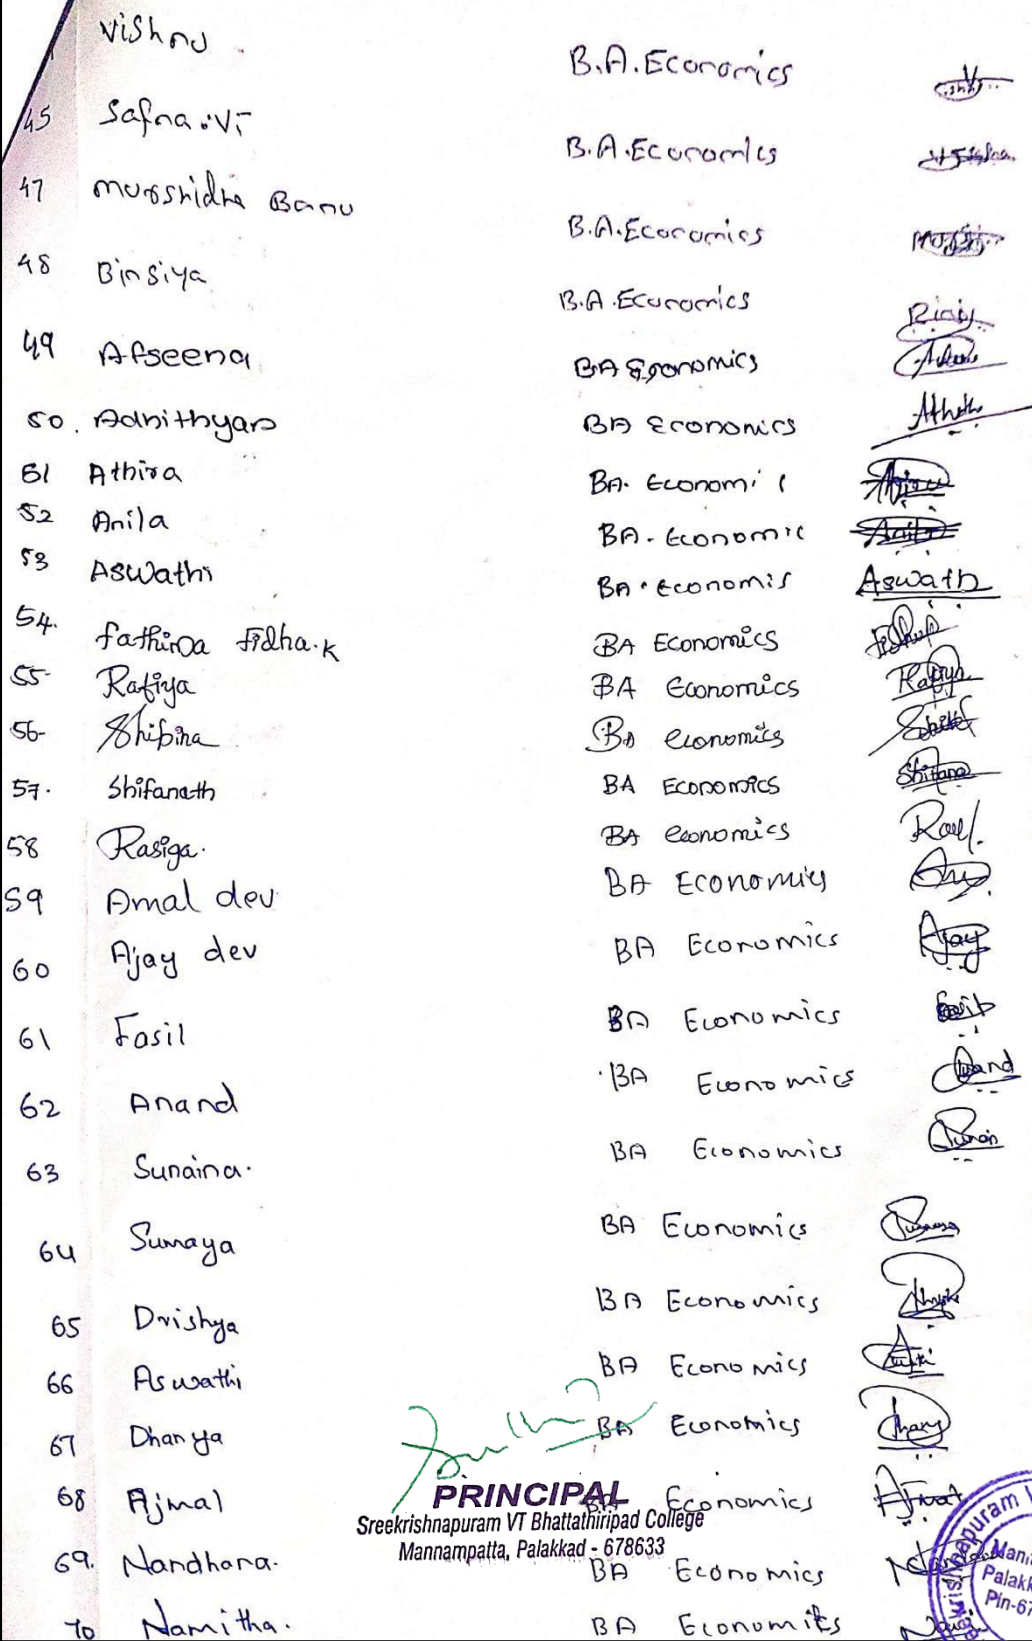 Vishnu B.A.Economics
45 Safna.VT B.A.Economics
47 Murshidha Banu B.A.Economics
48 Binsiya B.A.Economics
49 Afseena BA Economics
50. Adhithyan BA Economics
51 Athira BA. Economi
52 Anila BA. Economic
53 Aswathi BA. Economis Aswath
54. fathima fidha.K BA Economics
55- Rafiya BA Economics Rafiya
56- Shibina BA economics
57. Shifanath BA Economics Shifana
58 Rasiga. BA economics
59 Amal dev BA Economics
60 Ajay dev BA Economics Ajay
61 Fasil BA Economics
62 Anand BA Economics Anand
63 Sunaina. BA Economics
64 Sumaya BA Economics
65 Drishya BA Economics
66 Aswathi BA Economics
67 Dhanya BA Economics
68 Ajmal BA Economics
PRINCIPAL
Sreekrishnapuram VT Bhattathiripad College
Mannampatta, Palakkad - 678633
69. Nandhana. BA Economics
70 Namitha. BA Economics